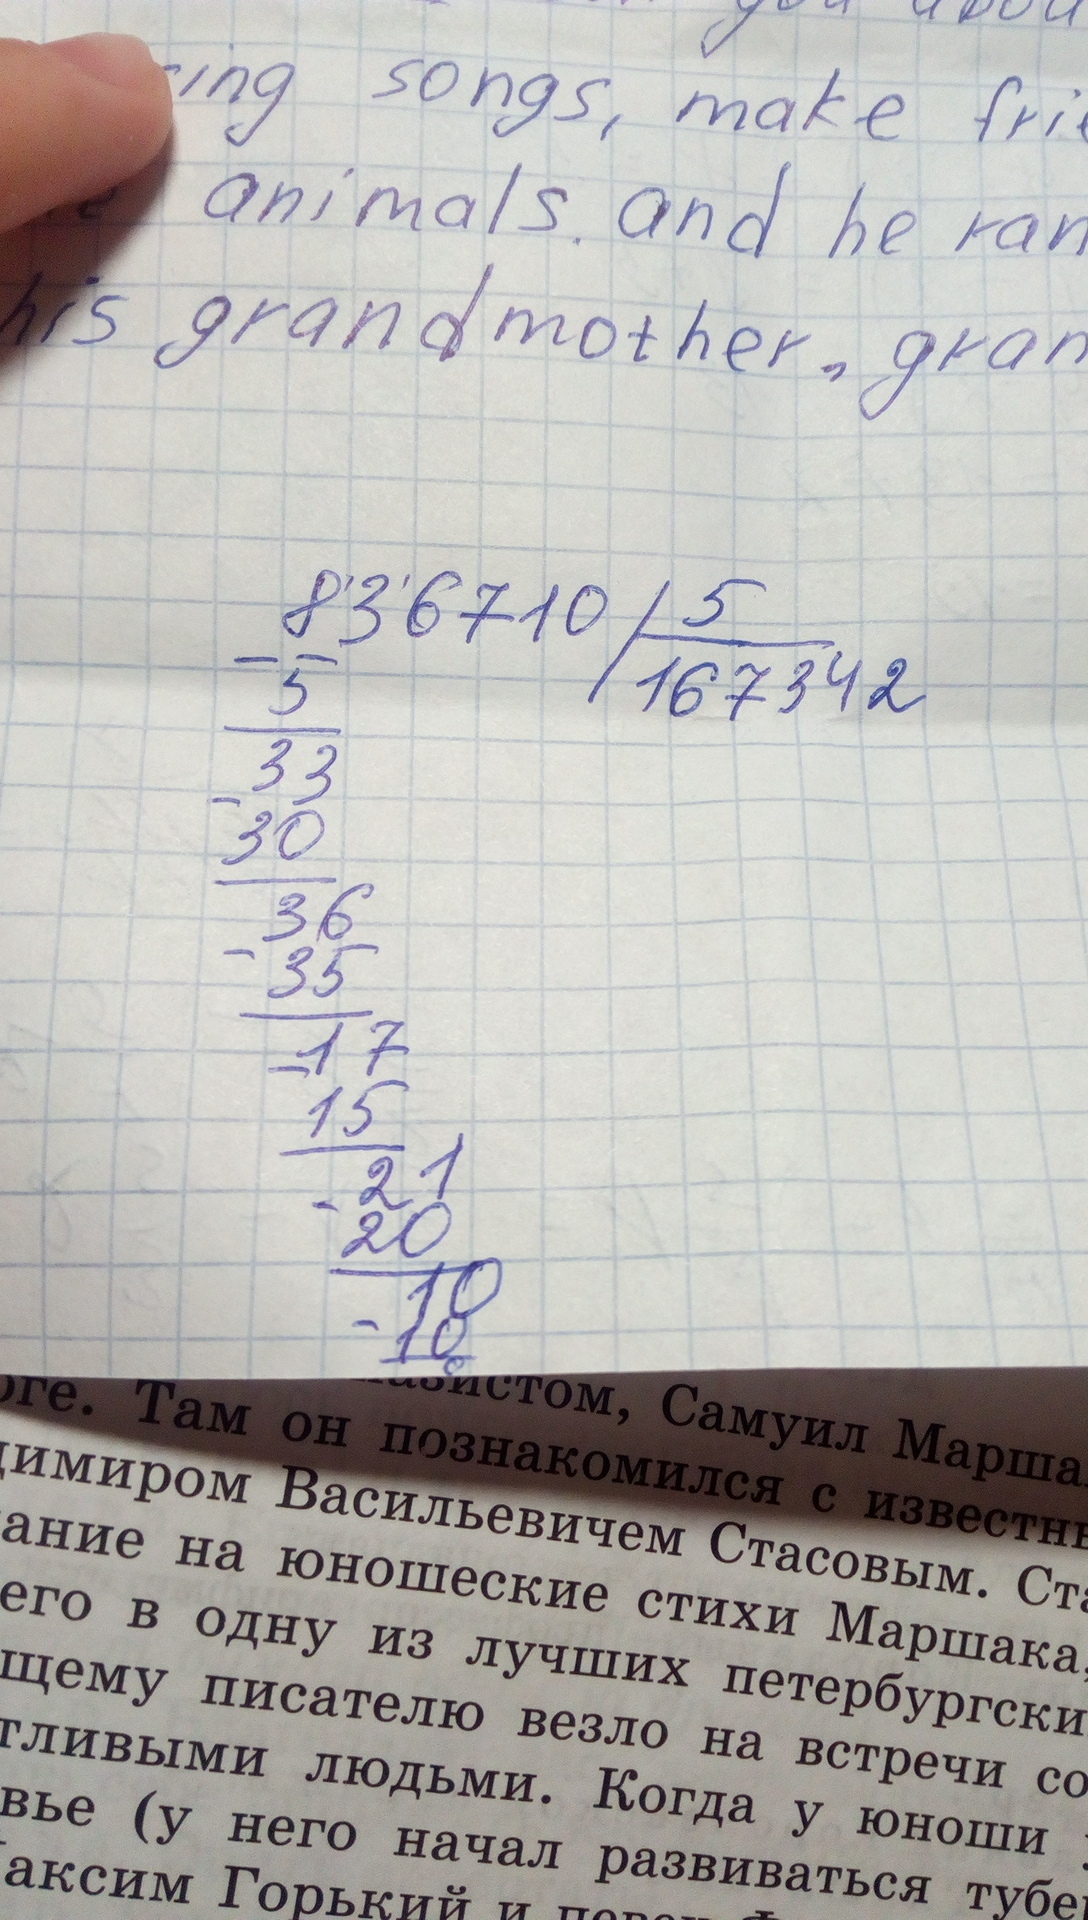 you
songs, make
animals. and he ran
his grandmother, gran
836710 5
- 5 167342
33
- 30
36
- 35
- 17
15
21
- 20
10
- 10
0
Самуил Марша
Там он познакомился с известн
димиром Васильевичем Стасовым. Ста
ание на юношеские стихи Маршака,
его в одну из лучших петербургски
щему писателю везло на встречи со
тливыми людьми. Когда у юноши
вье (у него начал развиваться тубе
Максим Горький и